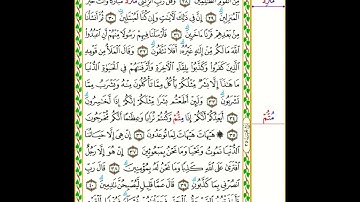 مِنَ ٱلْقَوْمِ ٱلظَّٰلِمِينَ ٢٨ وَقُل رَّبِّ أَنزِلْنِى مَنزِلًا مُّبَارَكًا وَأَنتَ خَيْرُ
ٱلْمُنزِلِينَ ٢٩ إِنَّ فِى ذَٰلِكَ لَءَايَٰتٍ وَإِن كُنَّا لَمُبْتَلِينَ ٣٠ ثُمَّ أَنشَأْنَا
مِنۢ بَعْدِهِمْ قَرْنًا ءَاخَرِينَ ٣١ فَأَرْسَلْنَا فِيهِمْ رَسُولًا مِّنْهُمْ أَنِ ٱعْبُدُوا۟
ٱللَّهَ مَا لَكُم مِّنْ إِلَٰهٍ غَيْرُهُۥٓ أَفَلَا تَتَّقُونَ ٣٢ وَقَالَ ٱلْمَلَأُ مِن قَوْمِهِ
ٱلَّذِينَ كَفَرُوا۟ وَكَذَّبُوا۟ بِلِقَآءِ ٱلْءَاخِرَةِ وَأَتْرَفْنَٰهُمْ فِى ٱلْحَيَوٰةِ ٱلدُّنْيَا
مَا هَٰذَآ إِلَّا بَشَرٌ مِّثْلُكُمْ يَأْكُلُ مِمَّا تَأْكُلُونَ مِنْهُ وَيَشْرَبُ مِمَّا
تَشْرَبُونَ ٣٣ وَلَئِنْ أَطَعْتُم بَشَرًا مِّثْلَكُمْ إِنَّكُمْ إِذًا لَّخَٰسِرُونَ
٣٤ أَيَعِدُكُمْ أَنَّكُمْ إِذَا مُتُّمْ وَكُنتُمْ تُرَابًا وَعِظَٰمًا أَنَّكُم مُّخْرَجُونَ
٣٥ هَيْهَاتَ هَيْهَاتَ لِمَا تُوعَدُونَ ٣٦ إِنْ هِىَ إِلَّا حَيَاتُنَا
ٱلدُّنْيَا نَمُوتُ وَنَحْيَا وَمَا نَحْنُ بِمَبْعُوثِينَ ٣٧ إِنْ هُوَ إِلَّا رَجُلٌ
ٱفْتَرَىٰ عَلَى ٱللَّهِ كَذِبًا وَمَا نَحْنُ لَهُۥ بِمُؤْمِنِينَ ٣٨ قَالَ رَبِّ
ٱنصُرْنِى بِمَا كَذَّبُونِ ٣٩ قَالَ عَمَّا قَلِيلٍ لَّيُصْبِحُنَّ نَٰدِمِينَ ٤٠
مُتُّمْ